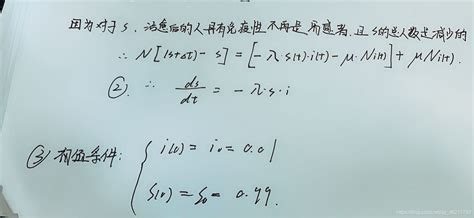 因为对于S,治愈后的人具有免疫性不再是易感者,且S的总人数是减少的
∴ N[(s+Δt) - s] = [-λ·s(t)·i(t) - μ·Ni(t)] + μNi(t).
②. ∴ ds/dt = -λ·s·i
③ 初值条件: { i(0) = i₀ = 0.01
S(0) = S₀ = 0.99.